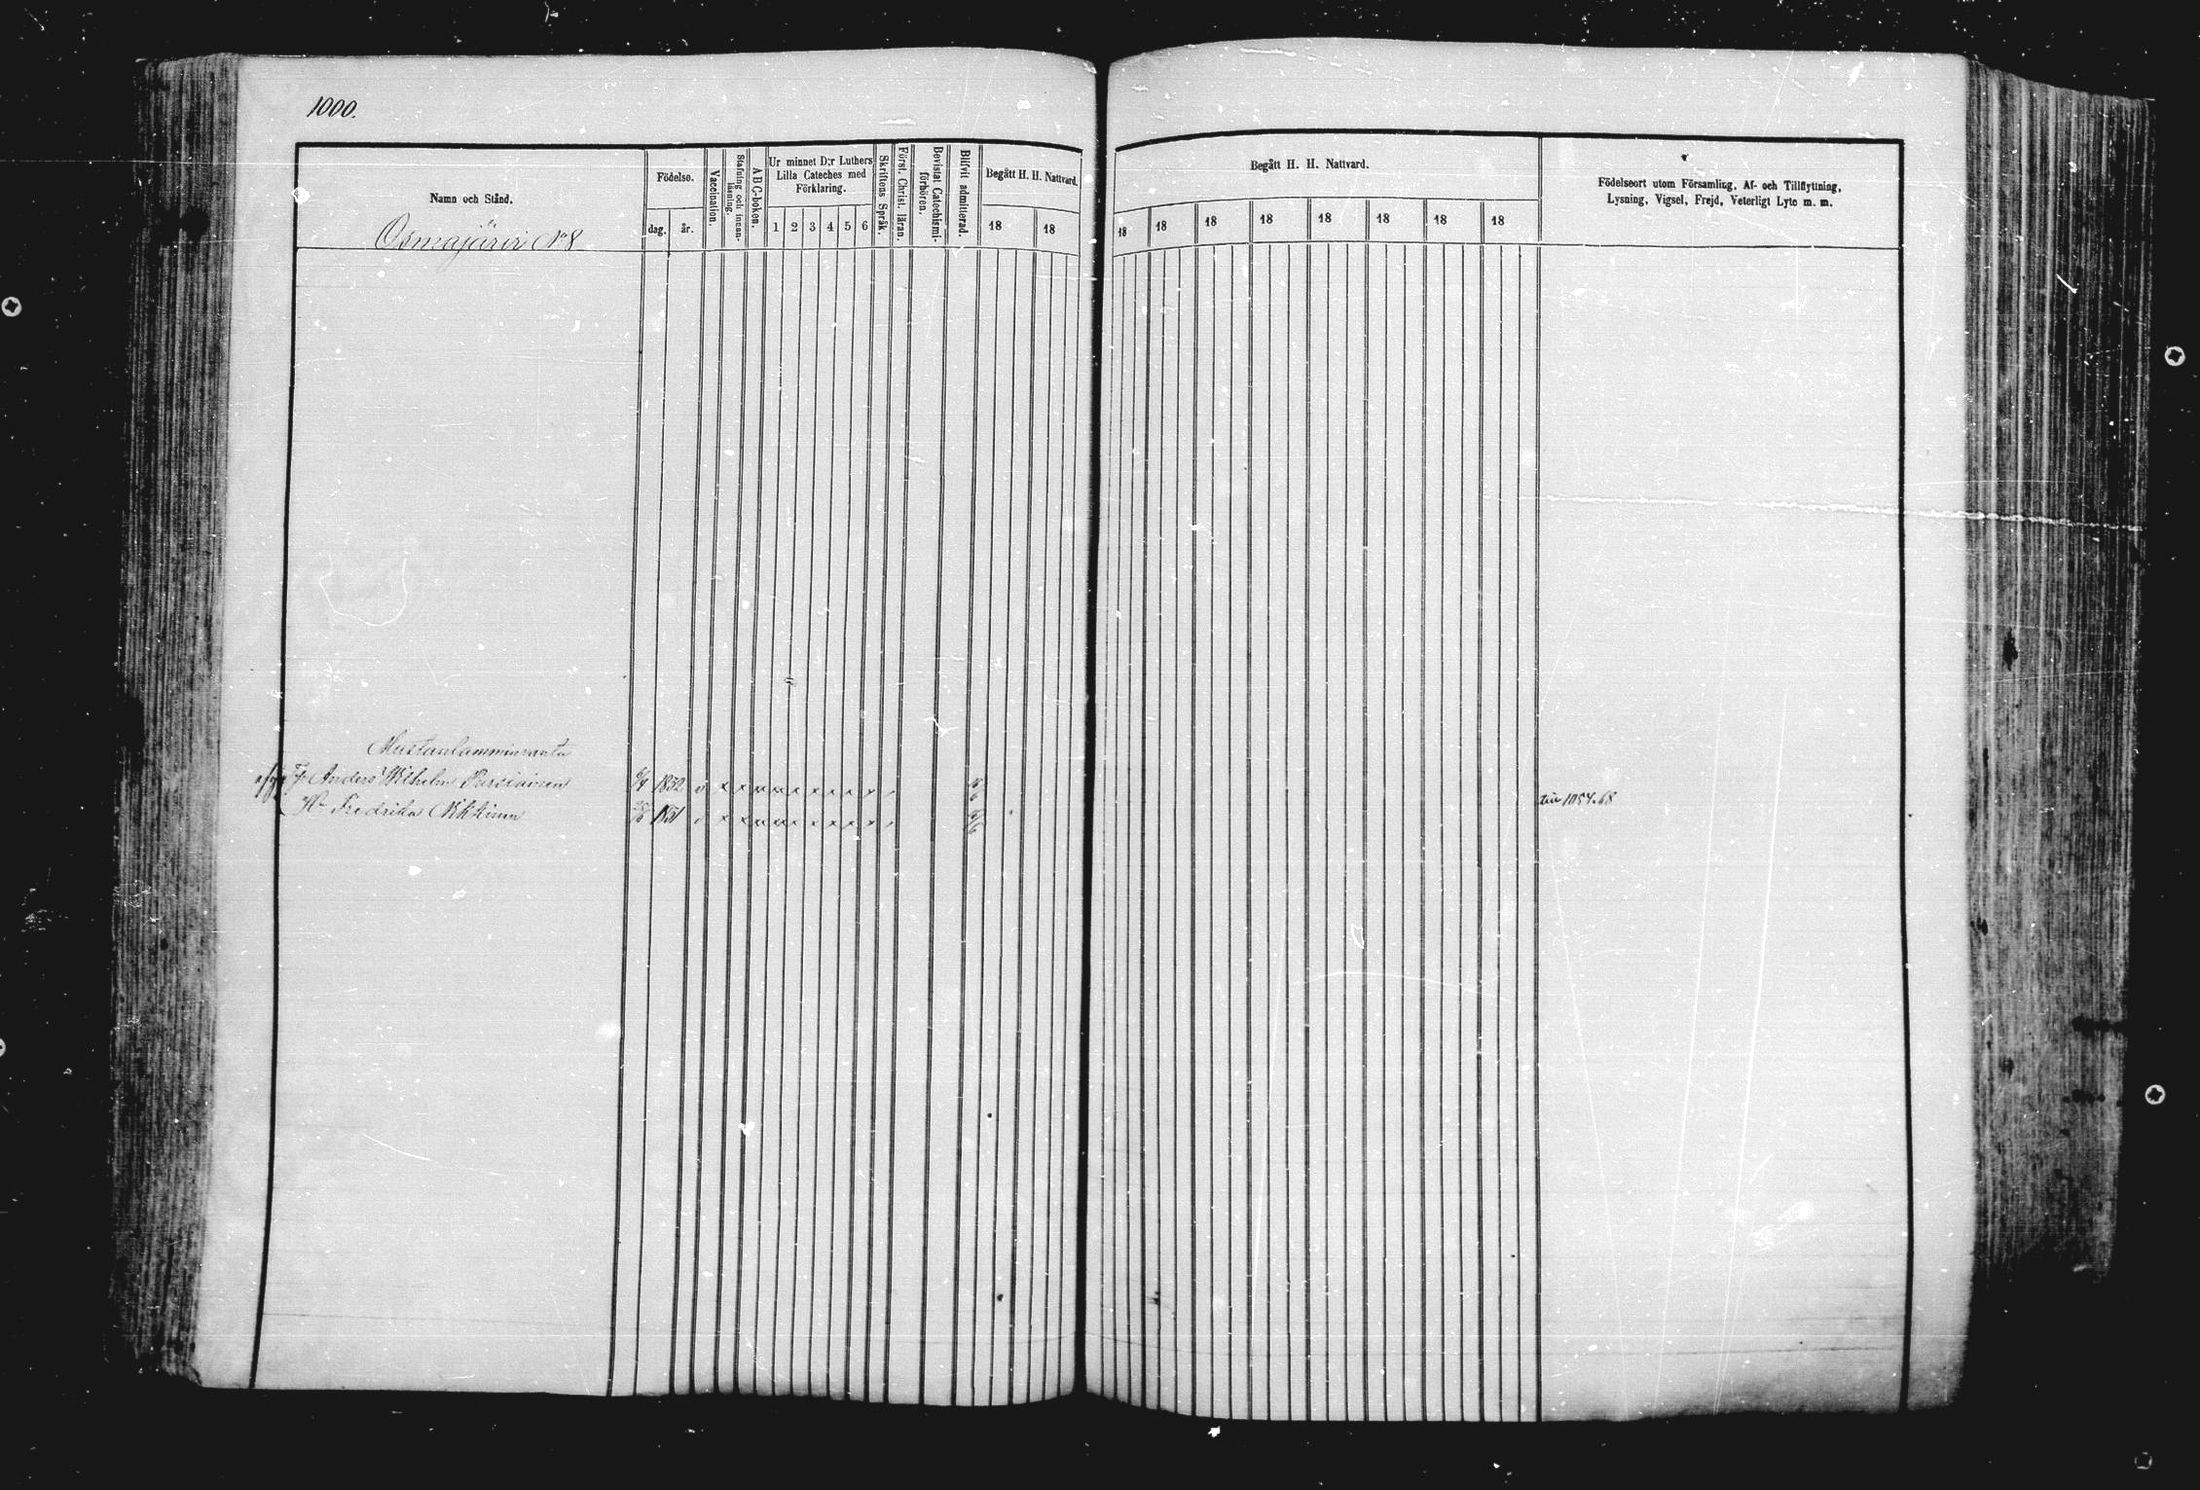 1000.
Namn och Stånd.
Osmajärvi N:o 8
Födelse.
dag.
år.
Vaccination.
Stafning och innan-
läsning.
A B C-boken.
Ur minnet D:r Luthers
Lilla Cateches med
Förklaring.
1 2 3 4 5 6
Skriftens Språk.
Först. Christ. läran.
Bevistat Catechismi-
förhören.
Blifvit admitterad.
Begått H. H. Nattvard.
18 18
Begått H. H. Nattvard.
18 18 18 18 18 18 18 18
Födelseort utom Församling, Af- och Tillflyttning,
Lysning, Vigsel, Frejd, Veterligt Lyte m. m.
Mustanlamminranta
Anders Wilhelm 1832
H:u Fredrika 1831
1054.68